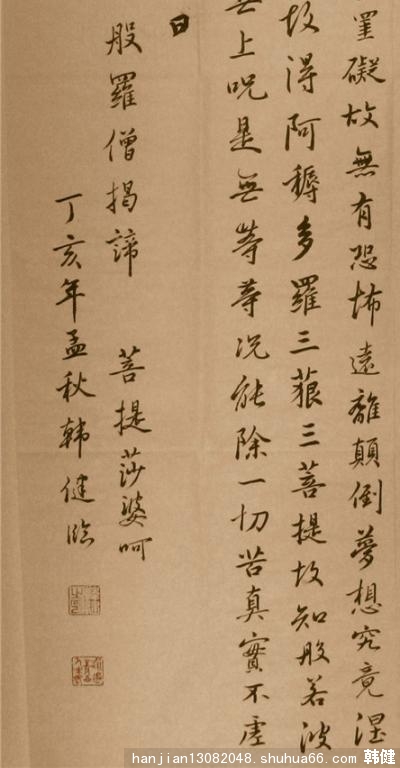 罣礙故無有恐怖遠離顛倒夢想究竟涅
故得阿耨多羅三藐三菩提故知般若波
上呪是無等等呪能除一切苦真實不虛
曰
般羅僧揭諦 菩提莎婆呵
丁亥年孟秋韓健臨
hanjian13082048.shuhua66.com 韩健